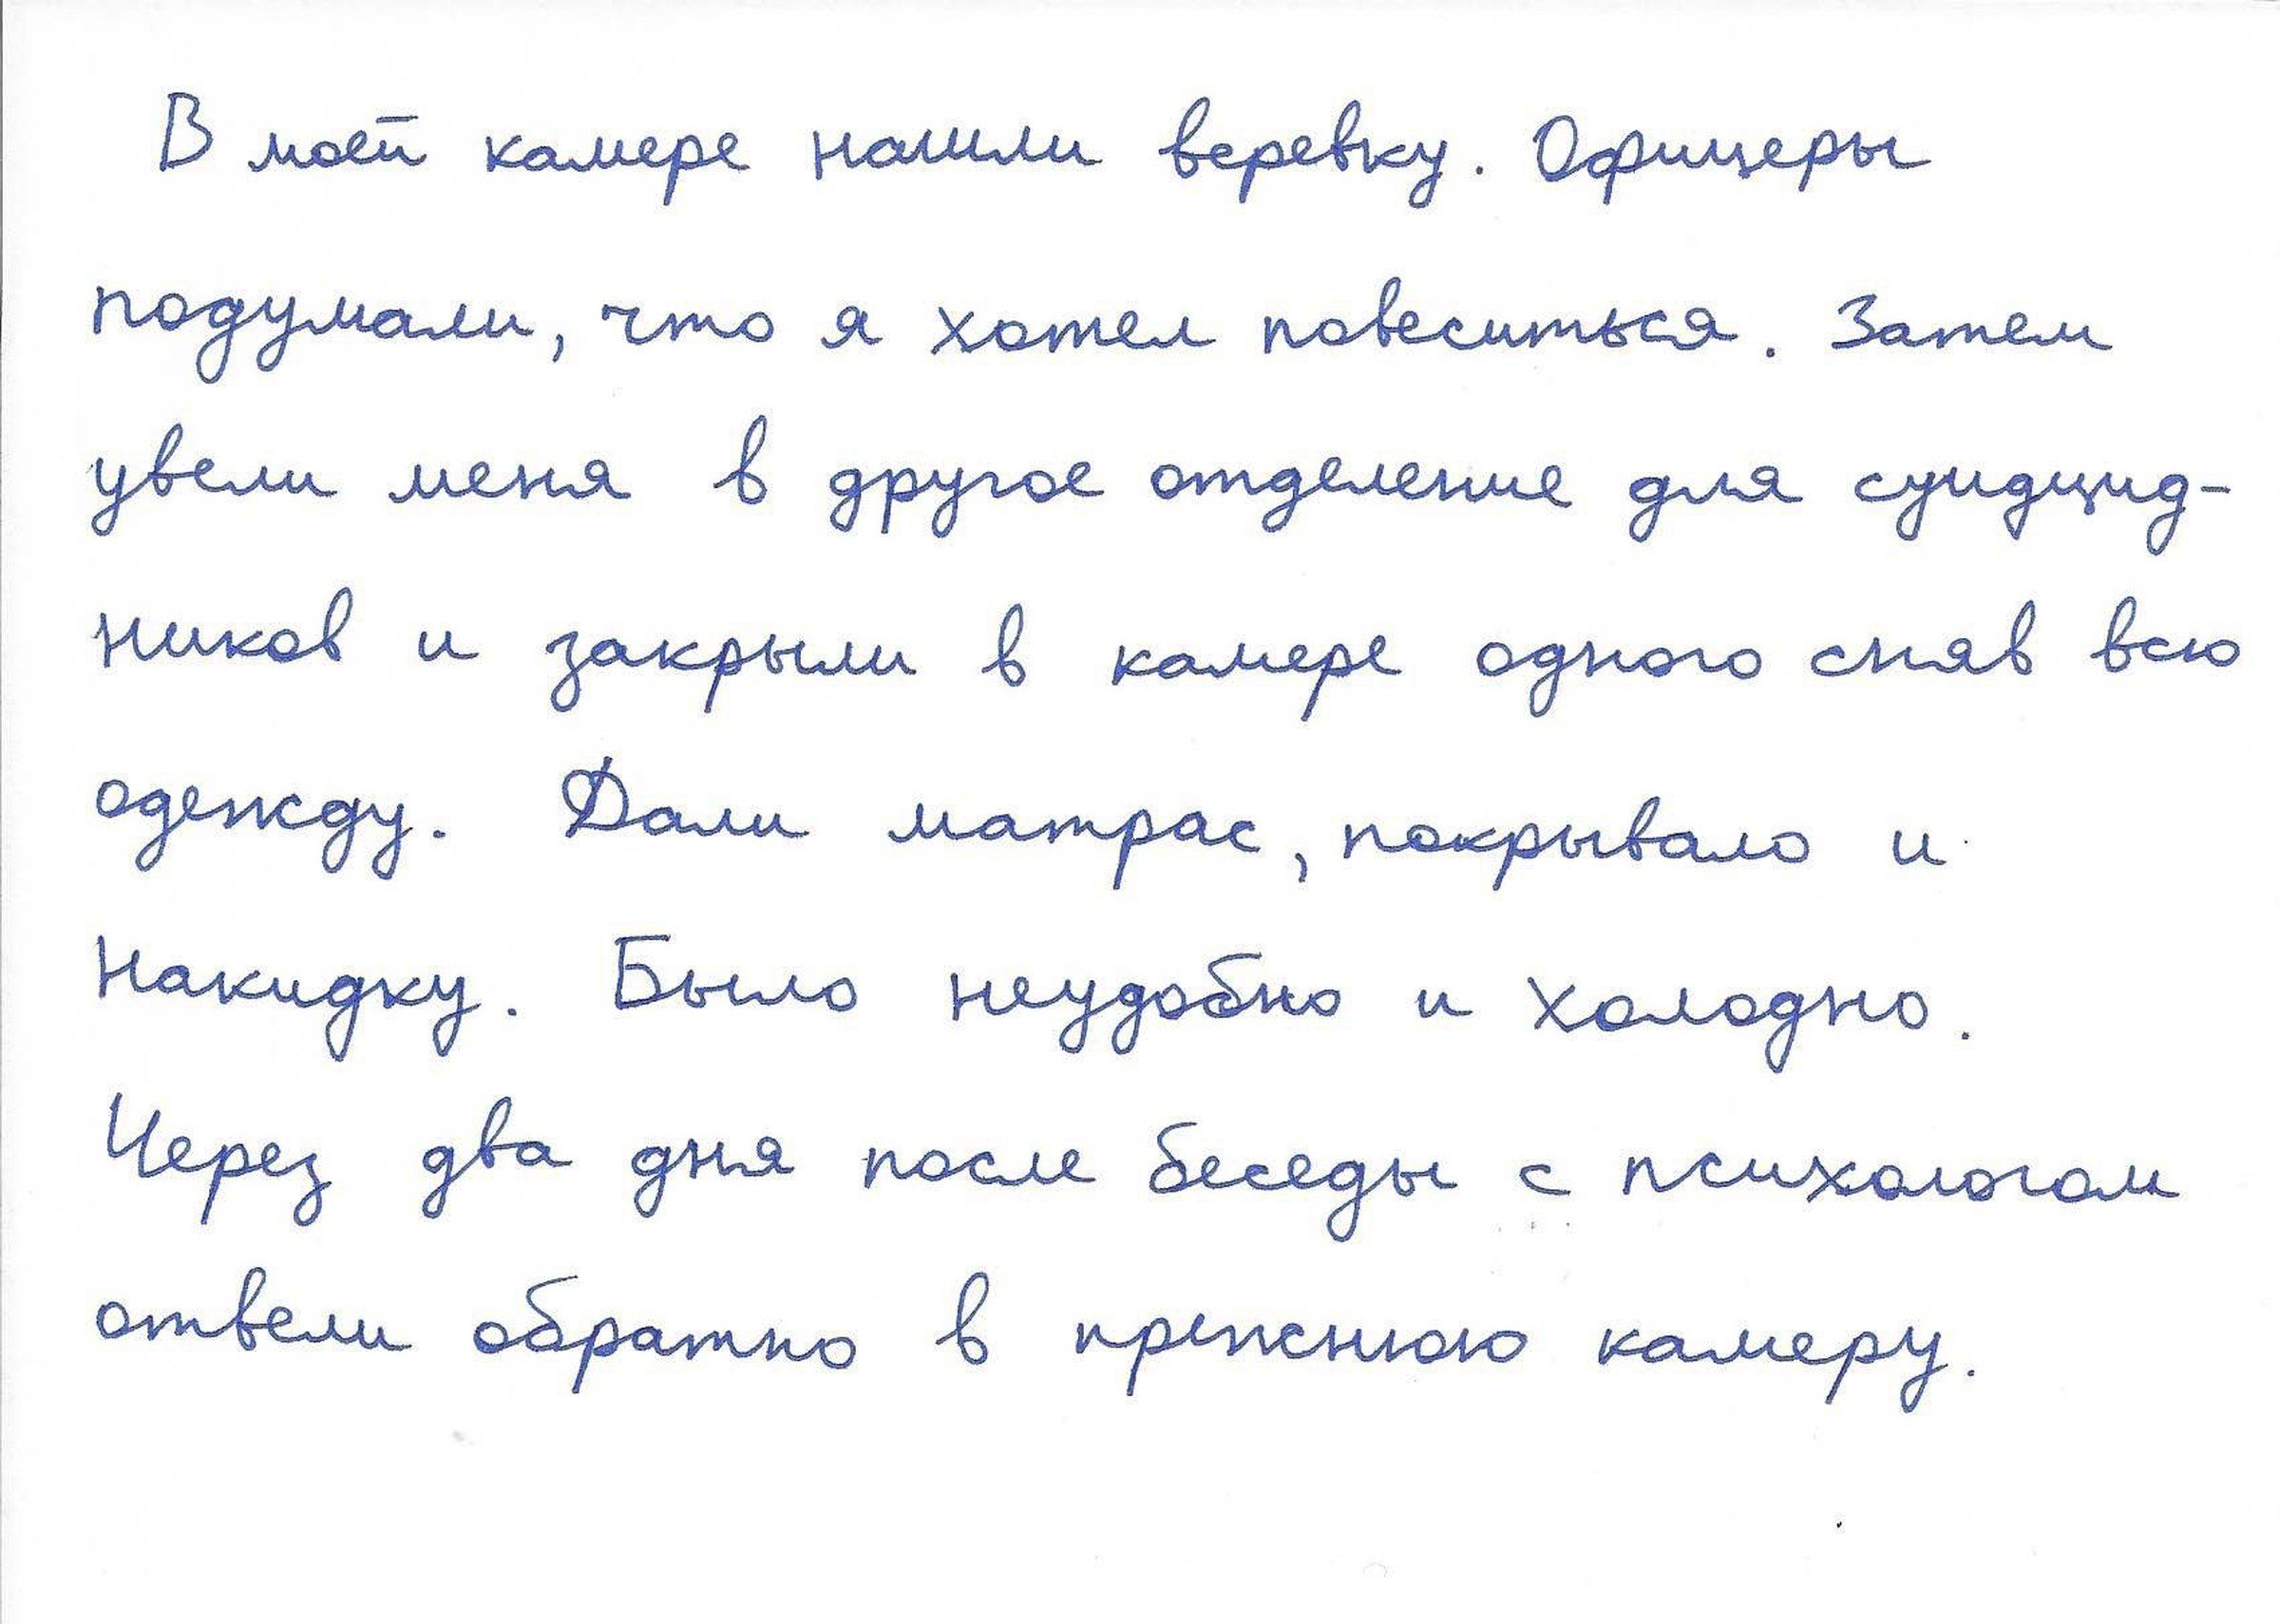 В моей камере нашли веревку. Офицеры
подумали, что я хотел повеситься. Затем
увели меня в другое отделение для суидцид-
ников и закрыли в камере одного сняв всю
одежду. Дали матрас, покрывало и
накидку. Было неудобно и холодно.
Через два дня после беседы с психологом
отвели обратно в прежнюю камеру.